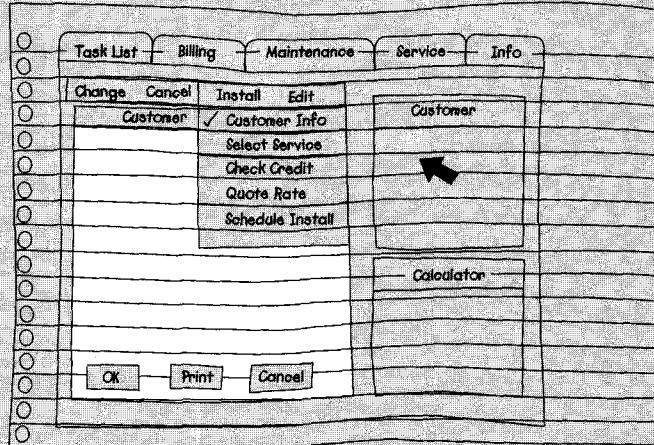 Task List Billing Maintenance Service Info
Change Cancel Install Edit
Customer ✓ Customer Info Customer
Select Service
Check Credit
Quote Rate
Schedule Install
Calculator
OK Print Cancel